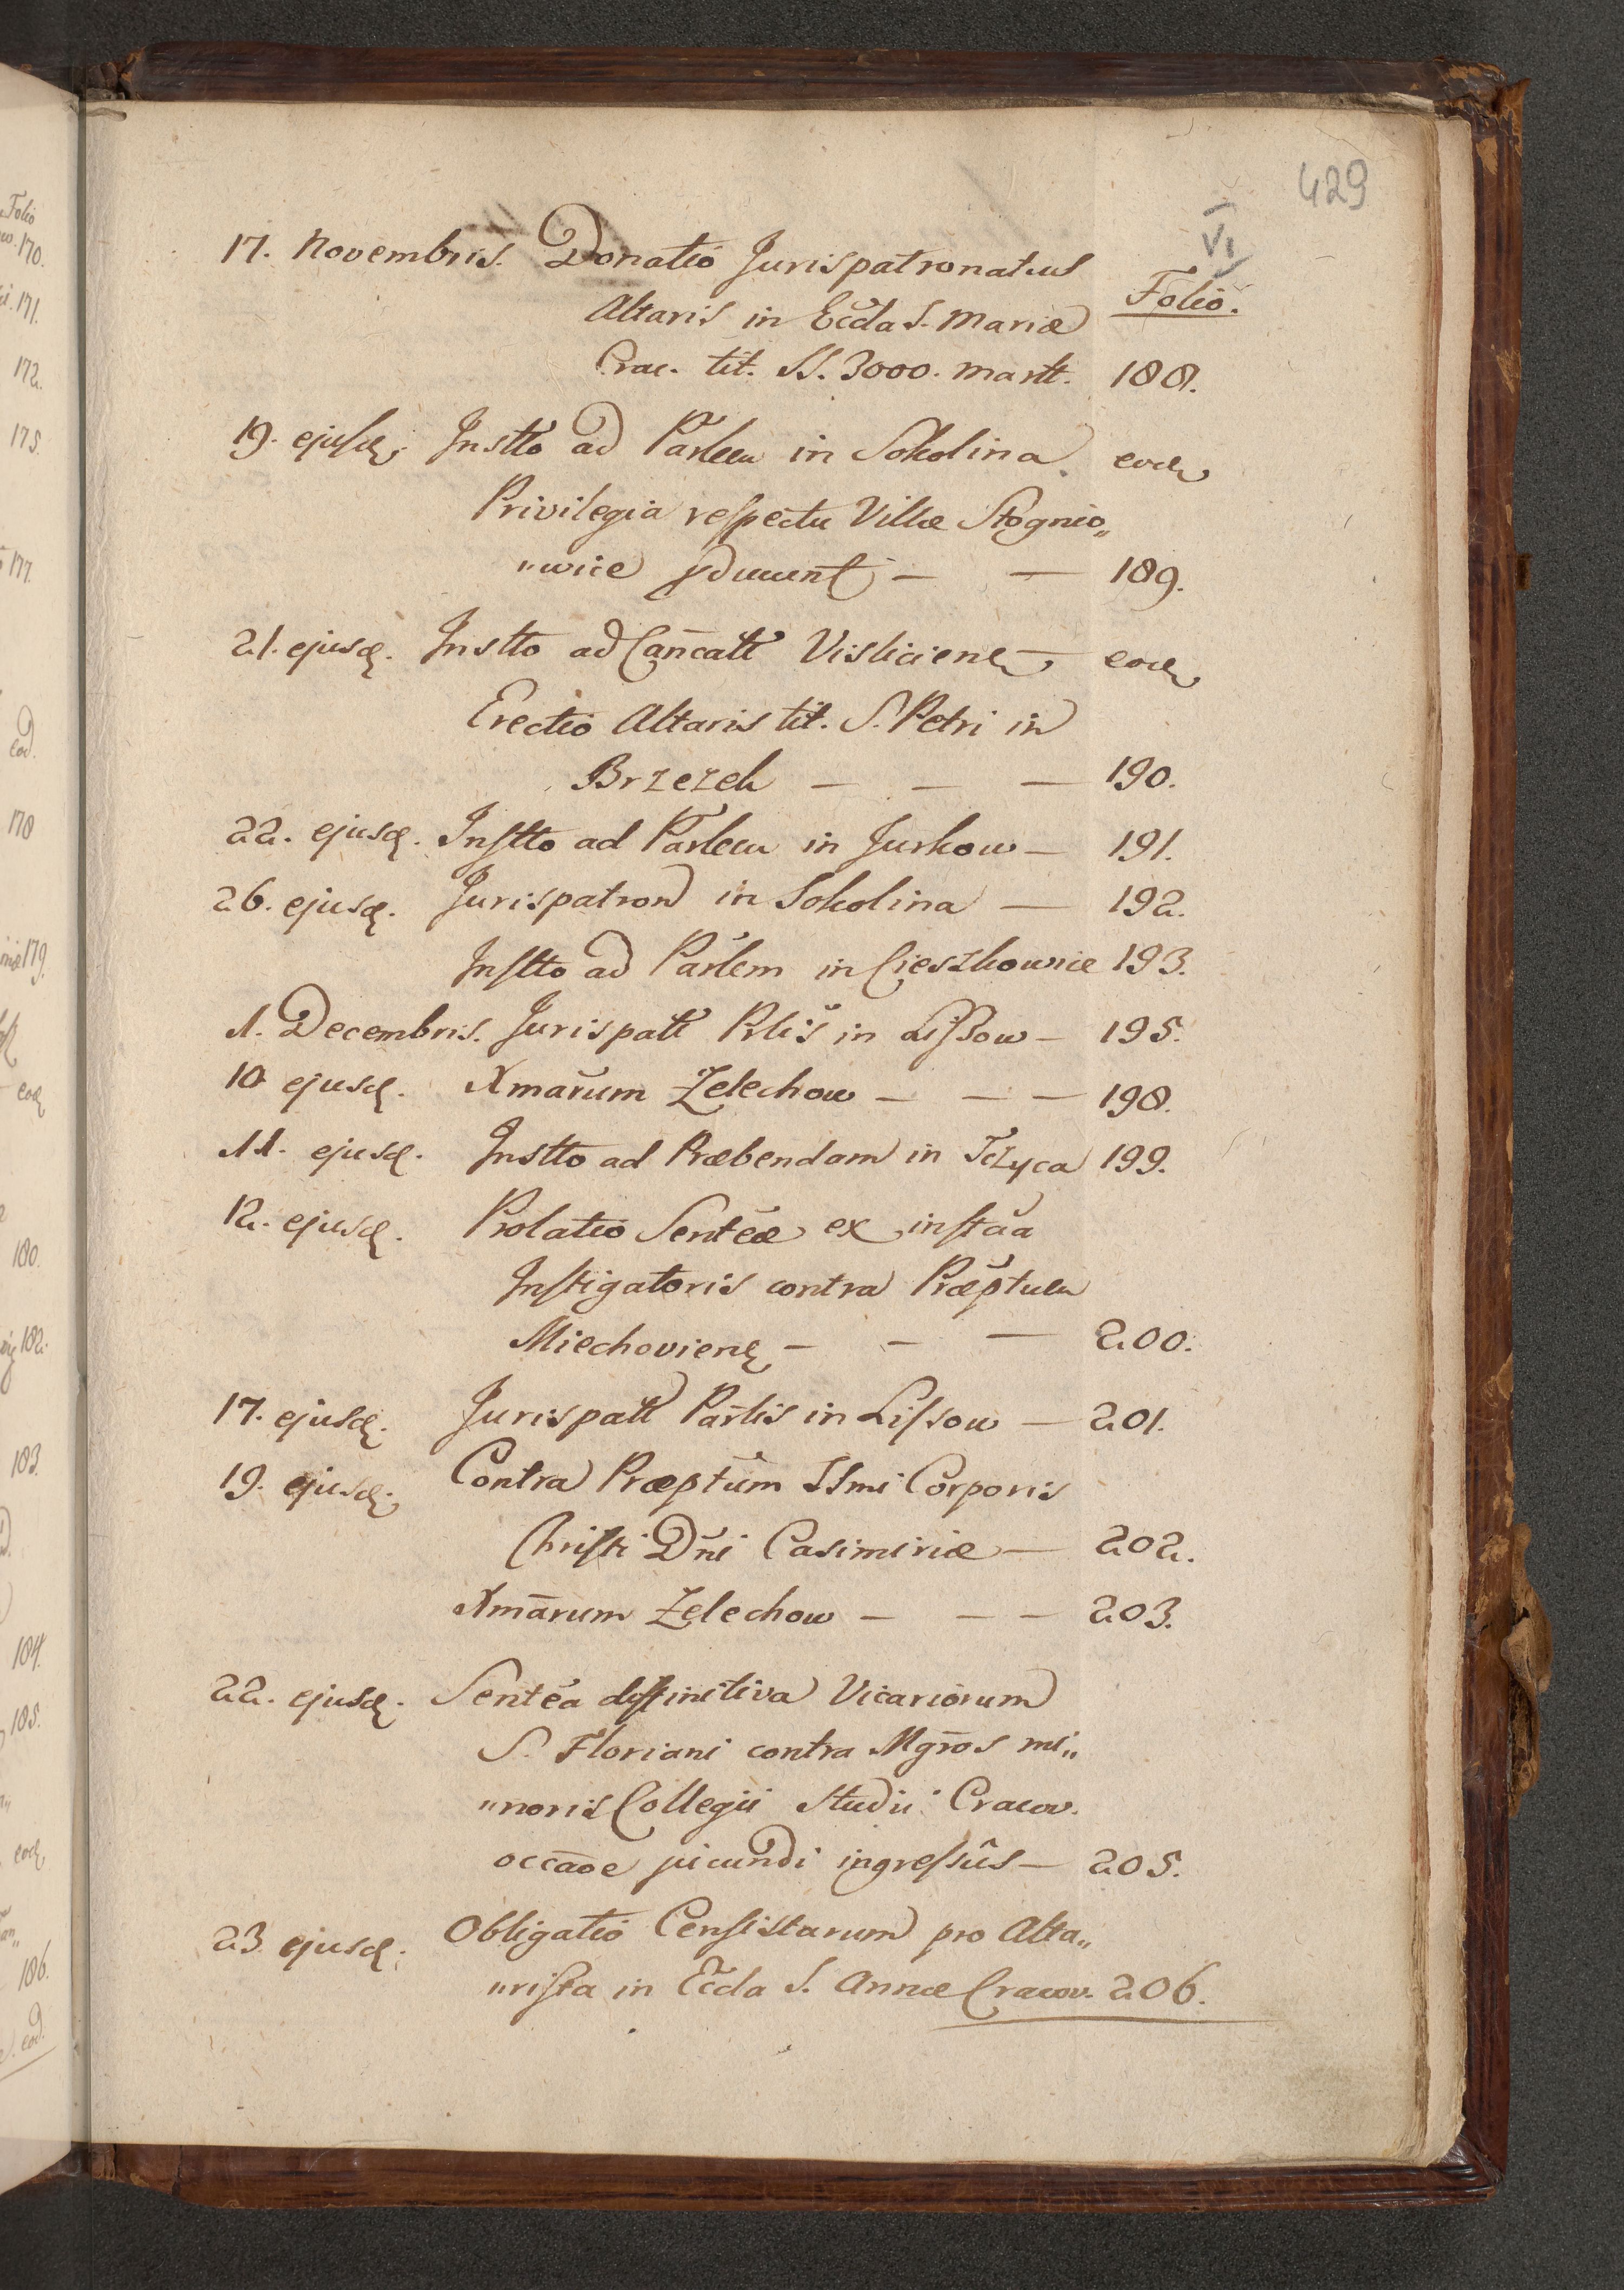 429
VI
Folio.
17. Novembris. Donatio Jurispatronatus
Altaris in Eccla S. Mariæ
Crac. tit. SS. 3000. Martt. 188.
19. ejusd. Instto ad Parlem in Sokolina eod.
Privilegia respectu Villæ Stognio„
„wice 189.
21. ejusd. Instto ad Cancatt Visliciens. — eod.
Erectio Altaris tit. S. Petri in
Brzezek — — — 190.
22. ejusd. Instto ad Parlem in Jurkow — 191.
26. ejusd. Jurispatron in Sokolina — 192.
Instto ad Parlem in Cieszkowice 193.
1. Decembris. Jurispatt Prlis in Lissow — 195.
10 ejusd. Xmarum Zelechow — — — 198.
11. ejusd. Instto ad Præbendam in Tczyca 199.
12. ejusd. Prolatio Sentcæ ex instãa
Instigatoris contra Præptum
Miechoviens. — — — 200.
17. ejusd. Jurispatt Parlis in Lissow — 201.
19. ejusd. Contra Præptum SSmi Corporis
Christi Dni Casimiriæ — 202.
Xmarum Zelechow — — — 203.
22. ejusd. Sentca diffinitiva Vicariorum
S. Floriani contra Mgros mi„
„noris Collegii Studii Cracov.
occaoe jucundi ingressûs — 205.
23. ejusd. Obligatio Censistarum pro Alta„
„rista in Eccla S. Annæ Cracov. 206.